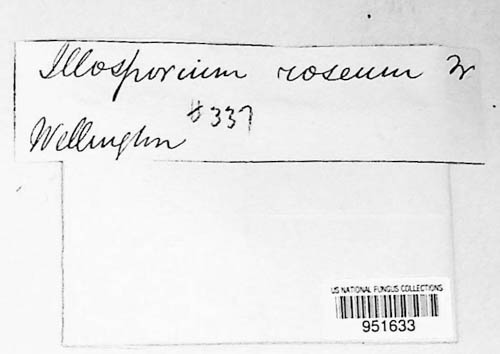 Illosporium roseum Fr
#337
Wellington
US NATIONAL FUNGUS COLLECTIONS
951633